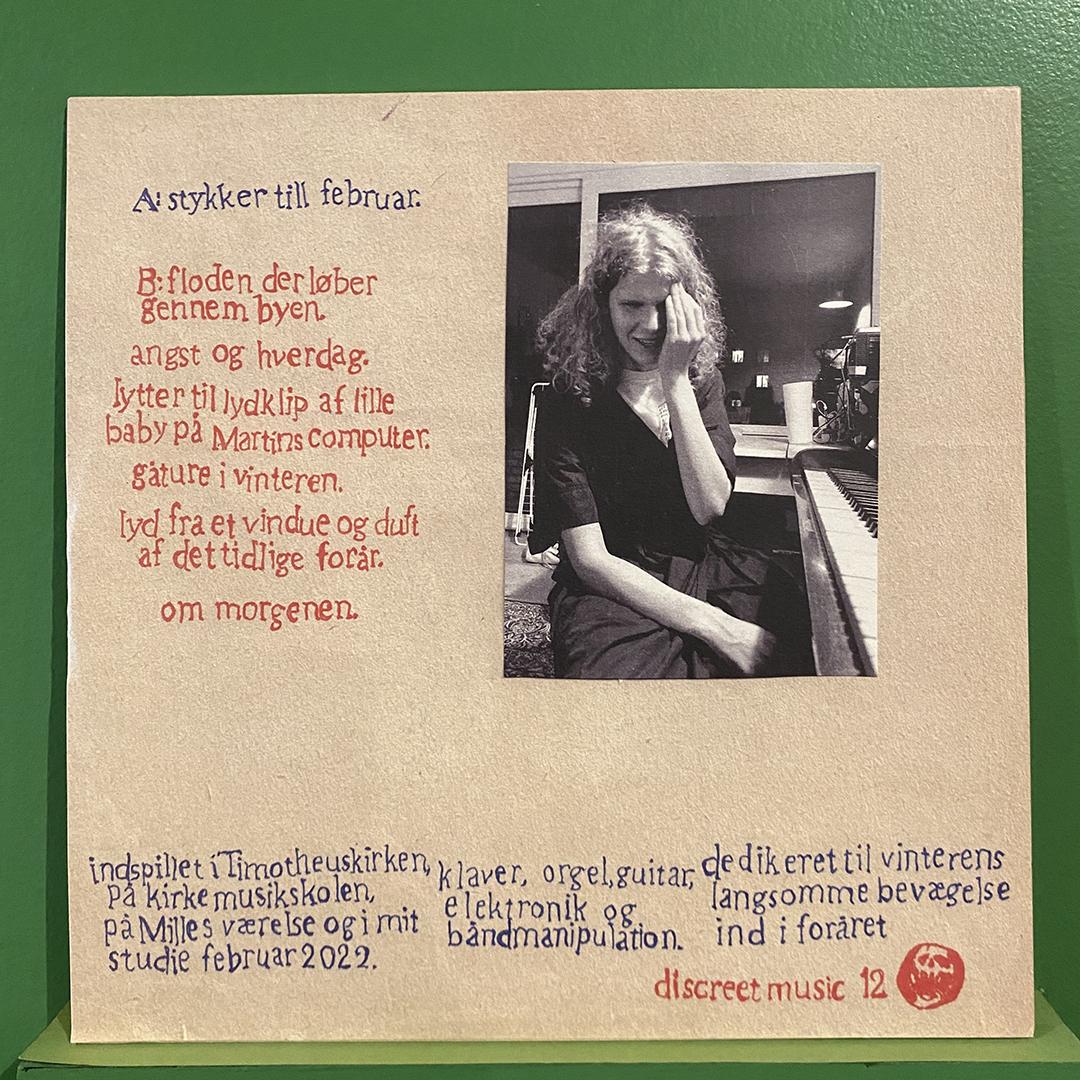 A: stykker till februar.
B: floden der løber
gennem byen.
angst og hverdag.
lytter til lydklip af lille
baby på Martins computer.
gåture i vinteren.
lyd fra et vindue og duft
af det tidlige forår.
om morgenen.
indspillet i Timotheuskirken,
på kirkemusikskolen,
på Milles værelse og i mit
studie februar 2022.
klaver, orgel, guitar,
elektronik og
båndmanipulation.
dedikeret til vinterens
langsomme bevægelse
ind i foråret
discreet music 12